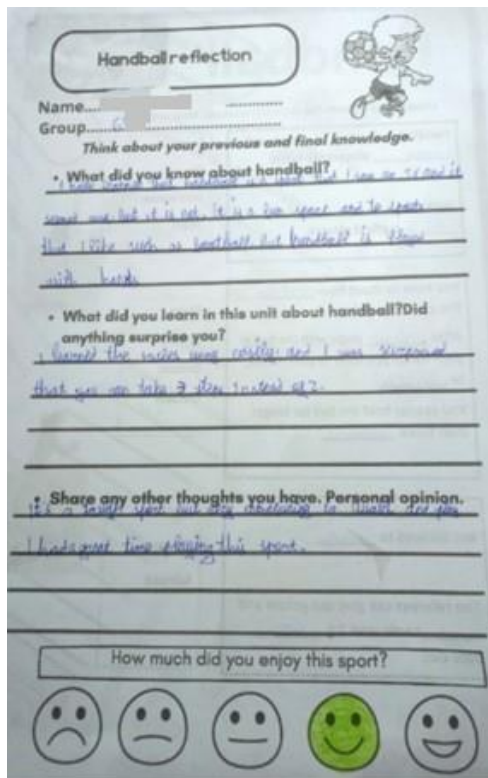 Handball reflection
Name....
Group.....
Think about your previous and final knowledge.
• What did you know about handball?
I have learned that handball is a sport that I saw on TV and it
but it is not, it is a fun sport and to sports
that I like such as football but handball is
with hands
• What did you learn in this unit about handball? Did
anything surprise you?
I learned the easily and I was surprised
that you can take 3 steps instead of 2.
• Share any other thoughts you have. Personal opinion.
It's a sport but to and play
I had a great time playing this sport.
How much did you enjoy this sport?